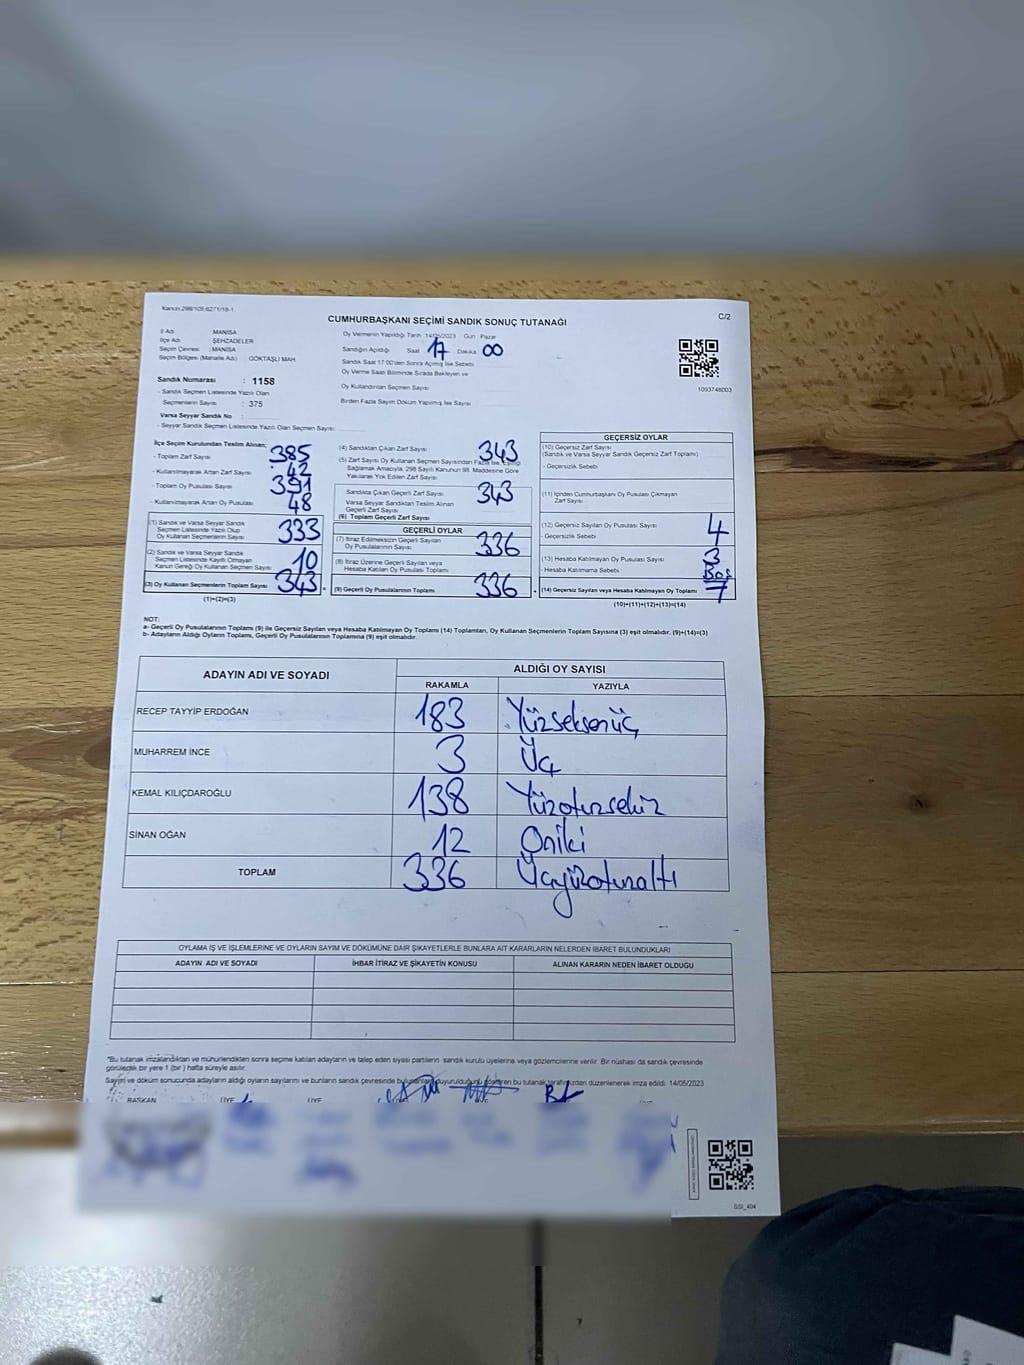 Kanun 298/105;6271/18-1
C/2
CUMHURBAŞKANI SEÇİMİ SANDIK SONUÇ TUTANAĞI
İl Adı : MANİSA
İlçe Adı : ŞEHZADELER
Seçim Çevresi : MANİSA
Seçim Bölgesi (Mahalle Adı) : GÖKTAŞLI MAH.
Sandık Numarası : 1158
- Sandık Seçmen Listesinde Yazılı Olan
Seçmenlerin Sayısı : 375
Varsa Seyyar Sandık No :
- Seyyar Sandık Seçmen Listesinde Yazılı Olan Seçmen Sayısı:
Oy Vermenin Yapıldığı Tarih : 14/05/2023 Gün : Pazar
Sandığın Açıldığı Saat 17 Dakika 00
Sandık Saat 17:00'den Sonra Açılmış İse Sebebi
Oy Verme Saati Bitiminde Sırada Bekleyen ve
Oy Kullandırılan Seçmen Sayısı
Birden Fazla Sayım Döküm Yapılmış İse Sayısı
1093748003
İlçe Seçim Kurulundan Teslim Alınan;
- Toplam Zarf Sayısı 385
- Kullanılmayarak Artan Zarf Sayısı 42
- Toplam Oy Pusulası Sayısı 391
- Kullanılmayarak Artan Oy Pusulası 48
(1) Sandık ve Varsa Seyyar Sandık
Seçmen Listesinde Yazılı Olup
Oy Kullanan Seçmenlerin Sayısı 333
(2) Sandık ve Varsa Seyyar Sandık
Seçmen Listesinde Kayıtlı Olmayan
Kanun Gereği Oy Kullanan Seçmen Sayısı 10
(3) Oy Kullanan Seçmenlerin Toplam Sayısı 343
(1)+(2)=(3)
(4) Sandıktan Çıkan Zarf Sayısı 343
(5) Zarf Sayısı Oy Kullanan Seçmen Sayısından Fazla İse, Eşitliği
Sağlamak Amacıyla, 298 Sayılı Kanunun 98. Maddesine Göre
Yakılarak Yok Edilen Zarf Sayısı
Sandıkta Çıkan Geçerli Zarf Sayısı 343
Varsa Seyyar Sandıktan Teslim Alınan
Geçerli Zarf Sayısı
(6) Toplam Geçerli Zarf Sayısı
GEÇERLİ OYLAR
(7) İtiraz Edilmeksizin Geçerli Sayılan
Oy Pusulalarının Sayısı 336
(8) İtiraz Üzerine Geçerli Sayılan veya
Hesaba Katılan Oy Pusulası Toplamı
(9) Geçerli Oy Pusulalarının Toplamı 336
GEÇERSİZ OYLAR
(10) Geçersiz Zarf Sayısı
(Sandık ve Varsa Seyyar Sandık Geçersiz Zarf Toplamı)
- Geçersizlik Sebebi
(11) İçinden Cumhurbaşkanı Oy Pusulası Çıkmayan
Zarf Sayısı
(12) Geçersiz Sayılan Oy Pusulası Sayısı 4
- Geçersizlik Sebebi
(13) Hesaba Katılmayan Oy Pusulası Sayısı 3
- Hesaba Katılmama Sebebi Boş
(14) Geçersiz Sayılan veya Hesaba Katılmayan Oy Toplamı 7
(10)+(11)+(12)+(13)=(14)
NOT:
a- Geçerli Oy Pusulasının Toplamı (9) ile Geçersiz Sayılan veya Hesaba Katılmayan Oy Toplamı (14) Toplamları, Oy Kullanan Seçmenlerin Toplam Sayısına (3) eşit olmalıdır. (9)+(14)=(3)
b- Adayların Aldığı Oyların Toplamı, Geçerli Oy Pusulalarının Toplamına (9) eşit olmalıdır.
ADAYIN ADI VE SOYADI
ALDIĞI OY SAYISI
RAKAMLA YAZIYLA
RECEP TAYYİP ERDOĞAN 183 Yüzseksenüç
MUHARREM İNCE 3 Üç
KEMAL KILIÇDAROĞLU 138 Yüzotuzsekiz
SİNAN OĞAN 12 Oniki
TOPLAM 336 Üçyüzotuzaltı
OYLAMA İŞ VE İŞLEMLERİNE VE OYLARIN SAYIM VE DÖKÜMÜNE DAİR ŞİKAYETLERLE BUNLARA AİT KARARLARIN NELERDEN İBARET BULUNDUKLARI
ADAYIN ADI VE SOYADI
İHBAR İTİRAZ VE ŞİKAYETİN KONUSU
ALINAN KARARIN NEDEN İBARET OLDUĞU
"Bu tutanak imzalandıktan ve mühürlendikten sonra seçime katılan adayların ve talep eden siyasi partilerin sandık kurulu üyelerine veya gözlemcilerine verilir. Bir nüshası da sandık çevresinde
görülecek bir yere 1 (bir) hafta süreyle asılır.
Sayım ve döküm sonucunda adayların aldığı oyların sayılarını ve bunların sandık çevresinde duyurulduğunu gösteren bu tutanak tarafımızdan düzenlenerek imza edildi. 14/05/2023
BAŞKAN ÜYE ÜYE
SSİ_404